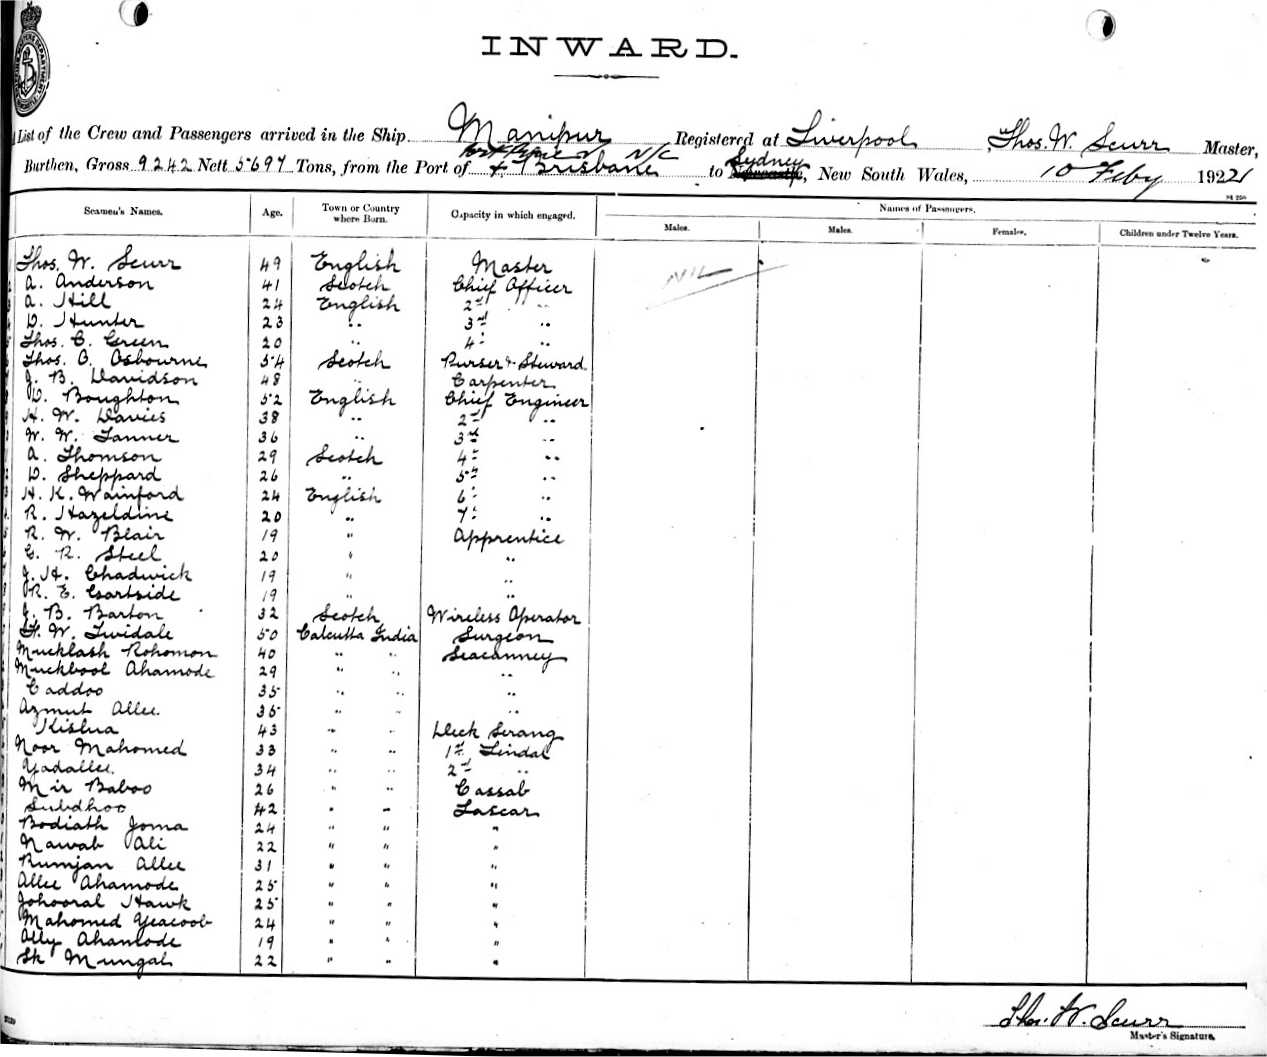 INWARD.
List of the Crew and Passengers arrived in the Ship Manipur Registered at Liverpool, Thos. W. Scurr Master,
Burthen, Gross 9242 Nett 5697 Tons, from the Port of & Brisbane to Sydney, New South Wales, 10 Feby 1922
Seamen's Names. Age. Town or Country where Born. Capacity in which engaged. Names of Passengers.
Males. Males. Females. Children under Twelve Years.
Thos. W. Scurr 49 English Master Nil
A. Anderson 41 Scotch Chief Officer
A. Hill 24 English 2nd "
D. Hunter 23 " 3rd "
Thos. C. Green 20 " 4th "
Thos. O. Osbourne 54 Scotch Purser & Steward
J. B. Davidson 48 " Carpenter
D. Boughton 52 English Chief Engineer
H. W. Davies 38 " 2nd "
W. W. Tanner 36 " 3rd "
A. Thomson 29 Scotch 4th "
D. Sheppard 26 " 5th "
H. K. Wainford 24 English 6th "
R. Hazeldine 20 " 7th "
R. W. Blair 19 " Apprentice
C. R. Steel 20 " "
J. H. Chadwick 19 " "
R. E. Gartside 19 " "
J. B. Barton 32 Scotch Wireless Operator
W. Twidale 50 Calcutta India Surgeon
Mucklash Rohomon 40 " " Seacunney
Muckbool Ahamode 29 " " "
Caddoo 35 " " "
Azmut Allee. 35 " " "
Kishua 43 " " Deck Serang
Noor Mahomed 33 " " 1st Tindal
Yadallee. 34 " " 2nd "
Mir Baboo 26 " " Cassab
Subdhoo 42 " " Lascar
Bodiath Joma 24 " " "
Nawab Ali 22 " " "
Rumjan Allee 31 " " "
Allee Ahamode 25 " " "
Johooral Hawk 25 " " "
Mahomed Yeacoob 24 " " "
Ally Ahamode 19 " " "
Sk Mungal 22 " " "
Thos. W. Scurr
Master's Signature.